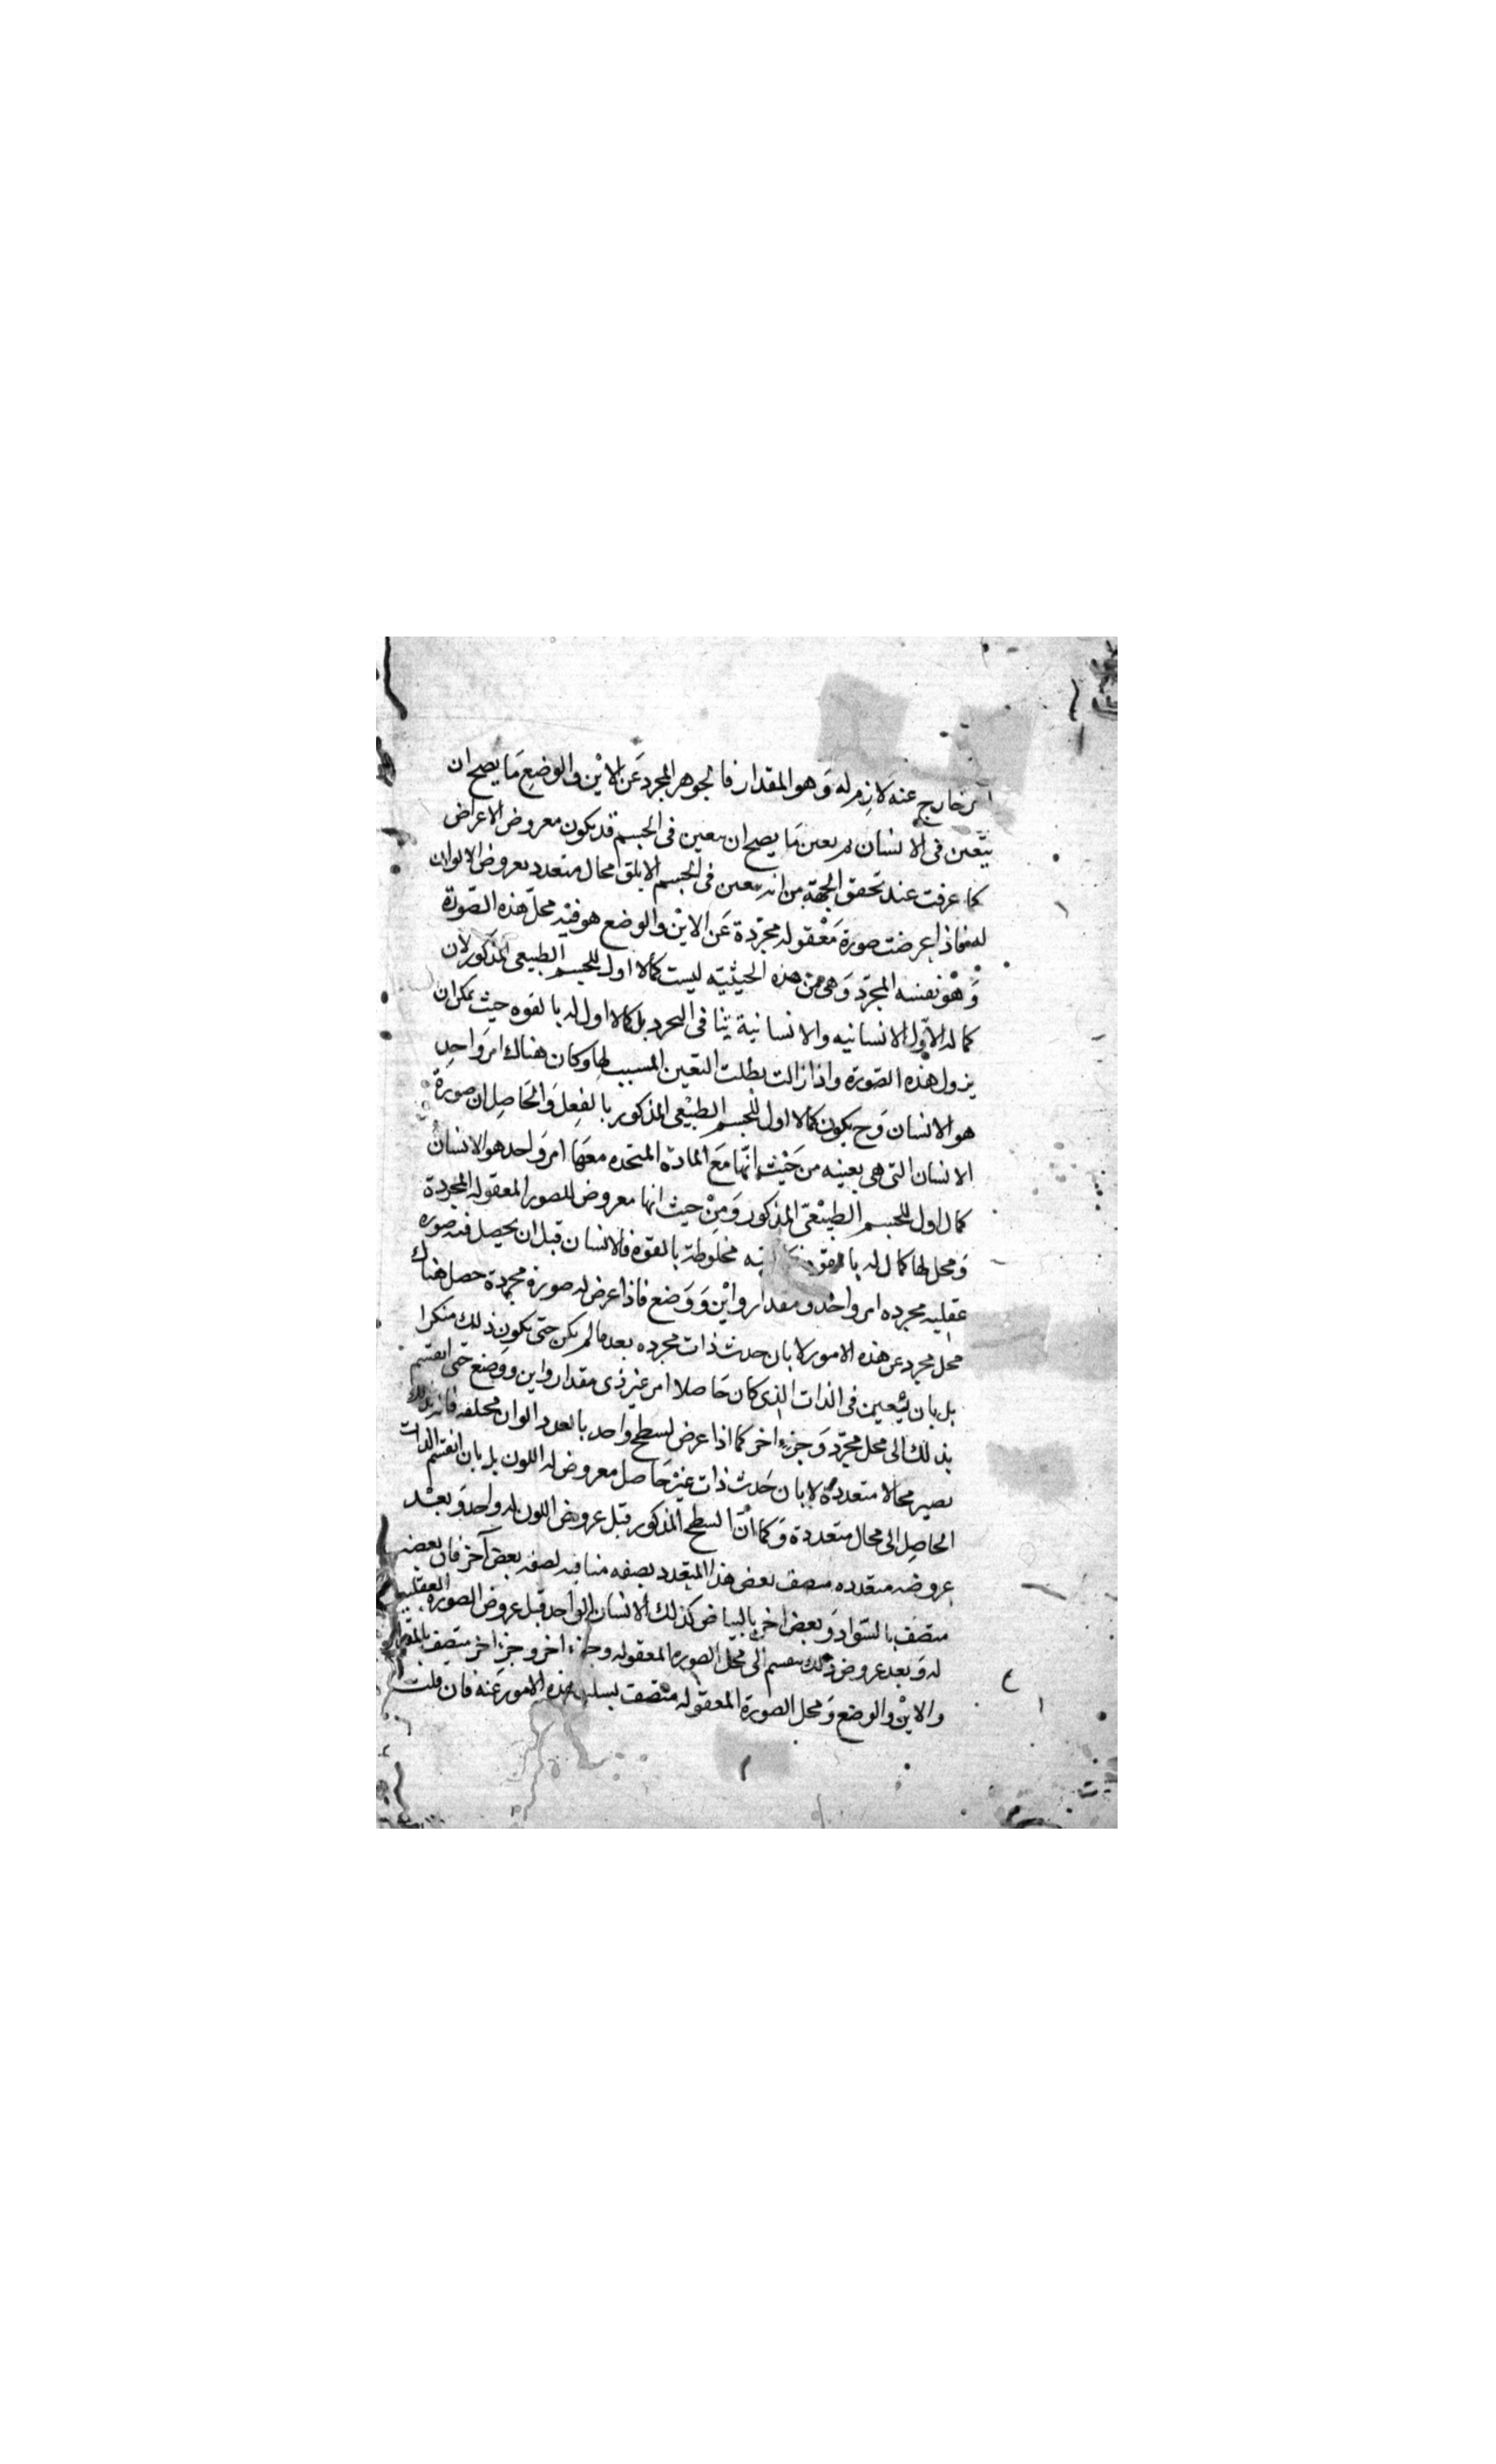 خارج عنه لازم له وهو المقدار فالجوهر المجرد عن الاين والوضع ما يصح ان
يتعين فى الانسان لم يعين ما يصح ان يتعين فى الجسم قد يكون معروض الاعراض
كما عرفت عند تحقق الجهة من انه يتعين فى الجسم الابلق محال متعدد بعروض الالوان
له فاذا عرضت صورة معقوله مجردة عن الاين والوضع هو فيه محل هذه الصورة
وهو نفسه المجرد وهى من هذه الحيثيه ليست كمالا اول للجسم الطبيعى المذكور لان
كماله الاول الانسانيه والانسانية ينافى التجرد بل كمالا اول له بالقوه حيث يمكن ان
يزول هذه الصوره واذا زالت بطلت التعين المسبب لها وكان هناك امر واحد
هو الانسان وح يكون كمالا اول للجسم الطبيعى المذكور بالفعل والحاصل ان صورة
الانسان التى هى بعينه من حيث انها مع المادة المتحده معها امر واحد هو الانسان
كمال اول للجسم الطبيعى المذكور ومن حيث انها معروض للصور المعقوله المجردة
ومحل لها كمال له بالقوه مخلوطة بالقوه فالانسان قبل ان يحصل فيه صوره
عقليه مجرده امر واحد ومقدار واين ووضع فاذا عرض له صورة مجردة حصل هناك
محل مجرد عن هذه الامور لا بان حدث ذات مجرده بعد ما لم يكن حتى يكون ذلك منكرا
بل بان يتعين فى الذات الذى كان حاصلا امر غير ذى مقدار واين ووضع حتى انقسم
بذلك الى محل مجرد وجزء اخر كما اذا عرض لسطح واحد بالعدد الوان مختلفه فانه بذلك
يصير محالا متعددة لا بان حدث ذات غير حاصل معروض له اللون بل بان انقسم الذات
الحاصل الى محال متعددة وكما ان السطح المذكور قبل عروض اللون له واحد وبعد
عروضه متعدده متصف بعض هذا المتعدد بصفه منافيه لصفه بعض آخر فان بعضه
متصف بالسواد وبعض اخر بالبياض كذلك الانسان الواحد قبل عروض الصورة العقليه
له وبعد عروض ذلك ينقسم الى محل الصوره المعقوله وجزء اخر وجزء اخر متصف بالمقدار
والاين والوضع ومحل الصورة المعقوله متصف بسلب هذه الامور عنه فان قلت